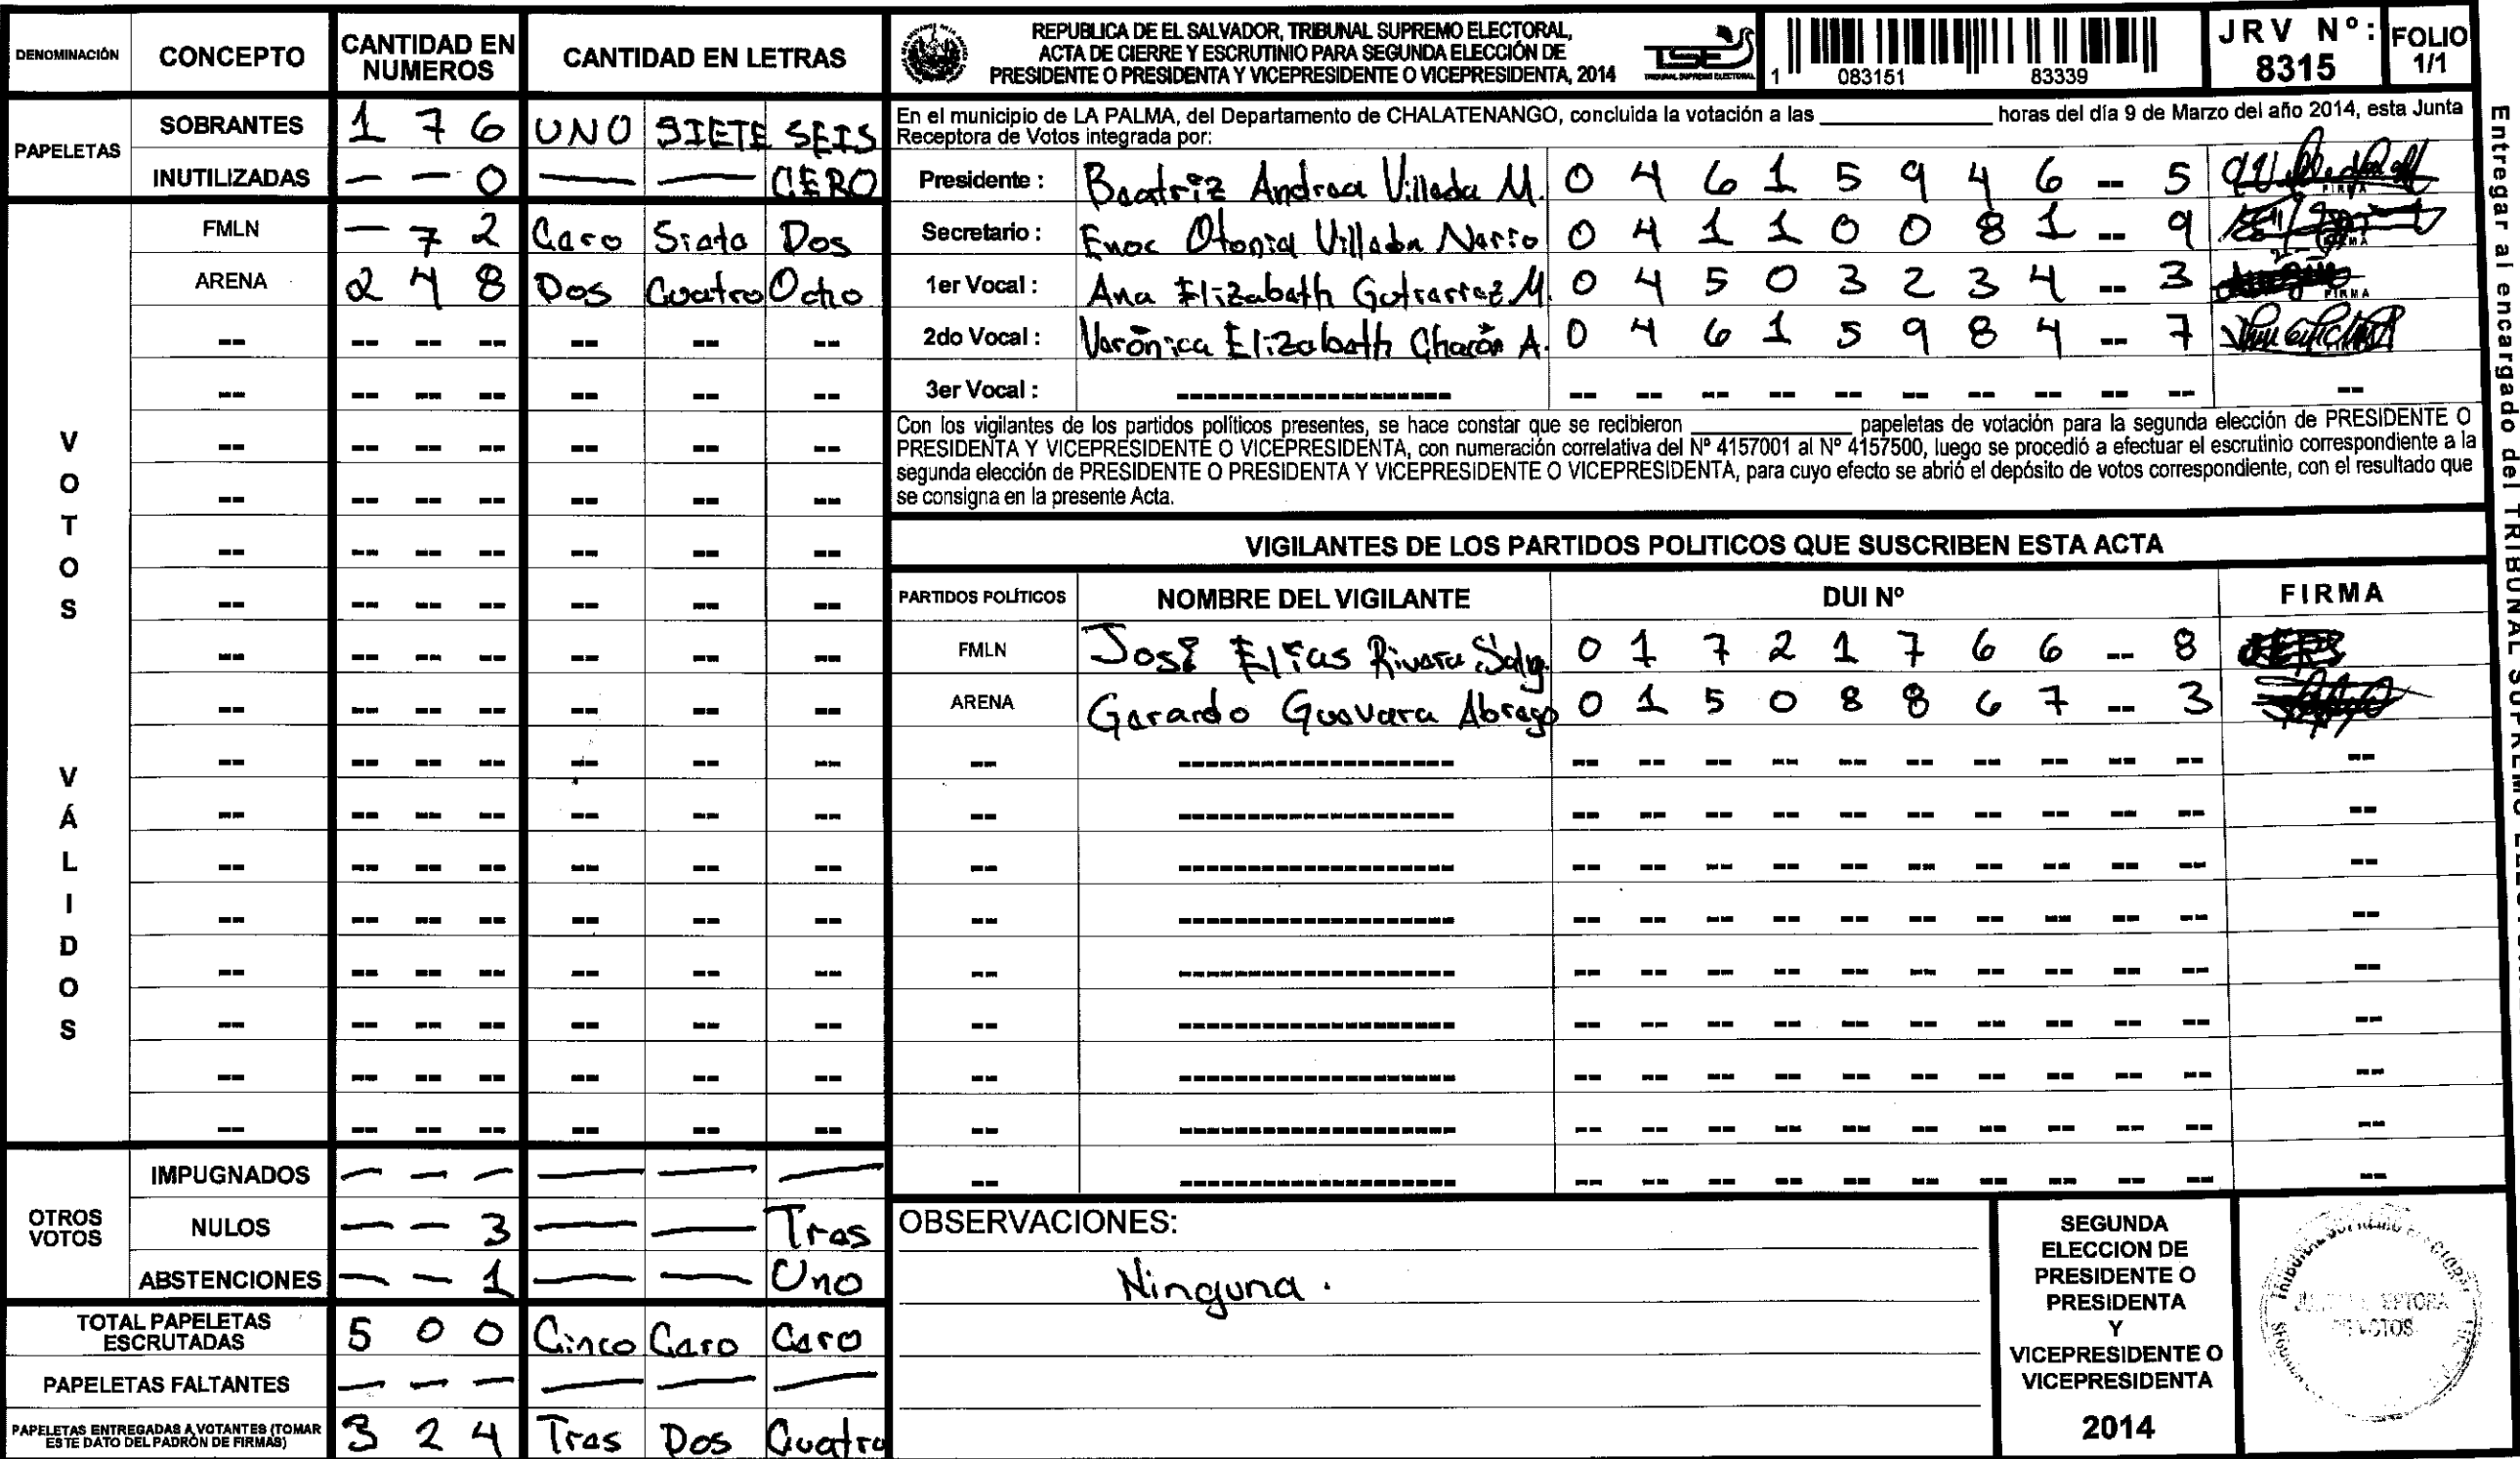 DENOMINACIÓN CONCEPTO CANTIDAD EN NUMEROS CANTIDAD EN LETRAS
PAPELETAS
SOBRANTES 1 7 6 UNO SIETE SEIS
INUTILIZADAS — — 0 — — CERO
VOTOS VÁLIDOS
FMLN — 7 2 Cero Siete Dos
ARENA 2 4 8 Dos Cuatro Ocho
OTROS VOTOS
IMPUGNADOS — — — — — —
NULOS — — 3 — — Tres
ABSTENCIONES — — 1 — — Uno
TOTAL PAPELETAS ESCRUTADAS 5 0 0 Cinco Cero Cero
PAPELETAS FALTANTES — — — — — —
PAPELETAS ENTREGADAS A VOTANTES (TOMAR ESTE DATO DEL PADRÓN DE FIRMAS) 3 2 4 Tres Dos Cuatro
REPUBLICA DE EL SALVADOR, TRIBUNAL SUPREMO ELECTORAL,
ACTA DE CIERRE Y ESCRUTINIO PARA SEGUNDA ELECCIÓN DE
PRESIDENTE O PRESIDENTA Y VICEPRESIDENTE O VICEPRESIDENTA, 2014
TSE
TRIBUNAL SUPREMO ELECTORAL
1 083151 83339
JRV Nº: 8315
FOLIO 1/1
En el municipio de LA PALMA, del Departamento de CHALATENANGO, concluida la votación a las ____________ horas del día 9 de Marzo del año 2014, esta Junta
Receptora de Votos integrada por:
Presidente : Beatriz Andrea Villeda M. 0 4 6 1 5 9 4 6 -- 5
Secretario : Enoc Otoniel Villeda Nerio 0 4 1 1 0 0 8 1 -- 9
1er Vocal : Ana Elizabeth Gutierrez M. 0 4 5 0 3 2 3 4 -- 3
2do Vocal : Verónica Elizabeth Chacón A. 0 4 6 1 5 9 8 4 -- 7
3er Vocal :
Con los vigilantes de los partidos políticos presentes, se hace constar que se recibieron ____________ papeletas de votación para la segunda elección de PRESIDENTE O
PRESIDENTA Y VICEPRESIDENTE O VICEPRESIDENTA, con numeración correlativa del Nº 4157001 al Nº 4157500, luego se procedió a efectuar el escrutinio correspondiente a la
segunda elección de PRESIDENTE O PRESIDENTA Y VICEPRESIDENTE O VICEPRESIDENTA, para cuyo efecto se abrió el depósito de votos correspondiente, con el resultado que
se consigna en la presente Acta.
VIGILANTES DE LOS PARTIDOS POLITICOS QUE SUSCRIBEN ESTA ACTA
PARTIDOS POLÍTICOS NOMBRE DEL VIGILANTE DUI Nº FIRMA
FMLN José Elías Rivera Salg. 0 1 7 2 1 7 6 6 -- 8
ARENA Gerardo Guevara Abrego 0 1 5 0 8 8 6 7 -- 3
OBSERVACIONES:
Ninguna.
SEGUNDA
ELECCION DE
PRESIDENTE O
PRESIDENTA
Y
VICEPRESIDENTE O
VICEPRESIDENTA
2014
Entregar al encargado del TRIBUNAL SUPREMO